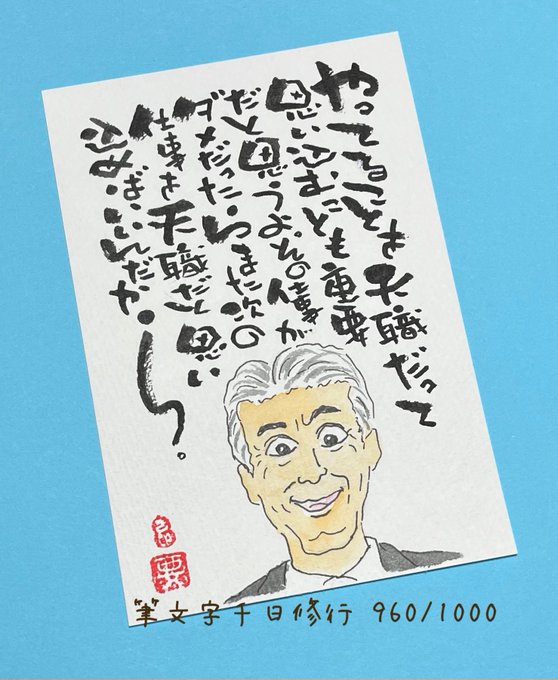 やってることを天職だって
思い込むことも重要
だと思うよ。その仕事が
ダメだったらまた次の
仕事を天職だと思い
込めばいいんだから。
筆文字千日修行 960/1000